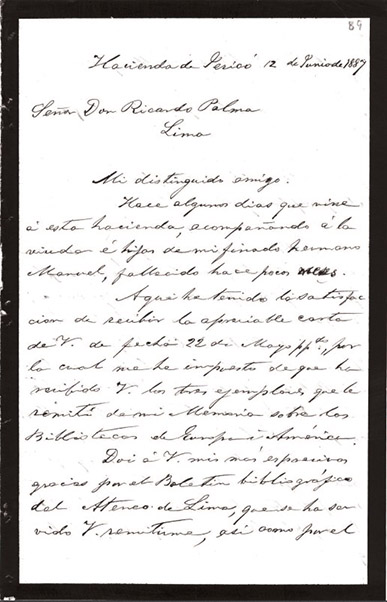 89
Hacienda de Jericó 12 de Junio de 1887
Señor Don Ricardo Palma
Lima
Mi distinguido amigo.
Hace algunos dias que vine
á esta hacienda, acompañando á la
viuda é hijos de mi finado hermano
Manuel, fallecido hace pocos meses.
Aqui he tenido la satisfac
cion de recibir la apreciable carta
de V. de fecha 22 de Mayo ppdo, por
la cual me he impuesto de que ha
recibido V. los tres ejemplares que le
remití de mi Memoria sobre las
Bibliotecas de Europa i América.
Doi á V. mis mas espresivas
gracias por el Boletin bibliográfico
del Ateneo de Lima, que se ha ser
vido V. remitirme, asi como por el